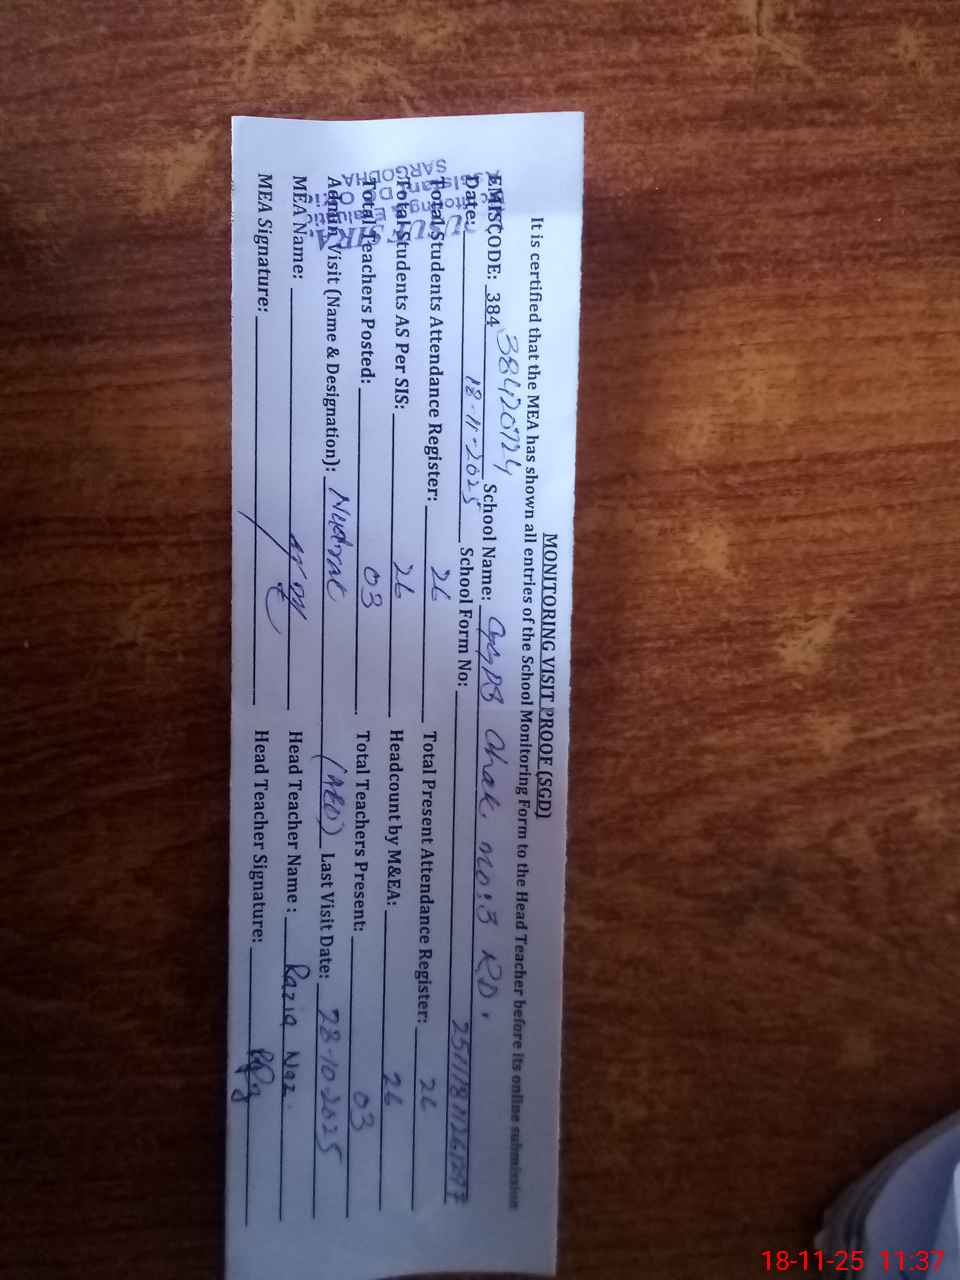 MONITORING VISIT PROOF (SGD)
It is certified that the MEA has shown all entries of the School Monitoring Form to the Head Teacher before its online submission
EMISCODE: 384 38420724 School Name: Chak no: 3 RD.
Date: 18-11-2025 School Form No:
Total Students Attendance Register: 26 Total Present Attendance Register: 26
Total Students AS Per SIS: 26 Headcount by M&EA: 26
Total Teachers Posted: 03 Total Teachers Present: 03
Admin Visit (Name & Designation): Nudrat (AEO) Last Visit Date: 28-10-2025
MEA Name: Head Teacher Name: Razia Naz.
MEA Signature: Head Teacher Signature:
SARGODHA
18-11-25 11:37